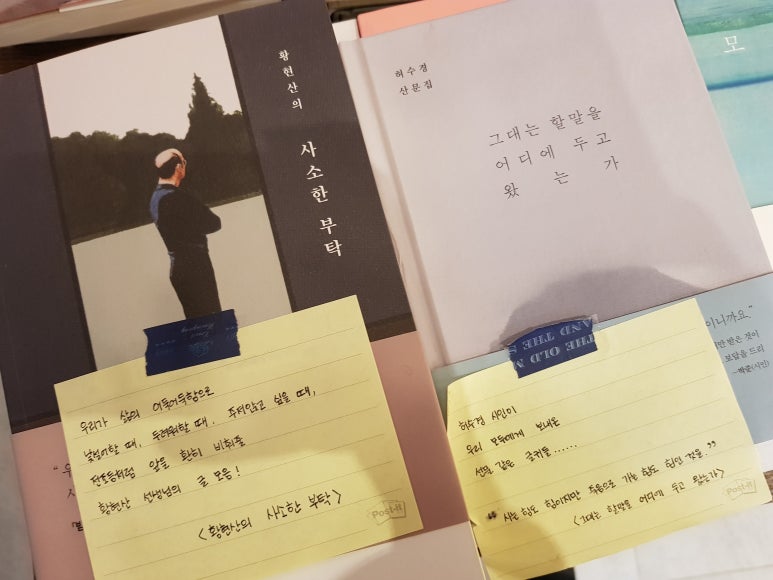 황현산의
사소한 부탁
우리가 삶의 어둑어둑함으로
낯설어할 때, 두려워할 때, 주저앉고 싶을 때,
전조등처럼 앞을 환히 비춰줄
황현산 선생님의 글 모음!
<황현산의 사소한 부탁>
Post-it
허수경
산문집
그대는 할말을
어디에 두고
왔는가
THE OLD M
AND THE S
허수경 시인이
우리 모두에게 보내온
선물 같은 글귀들......
"사는 힘도 힘이지만 죽음으로 가는 힘도 힘인 것을."
<그대는 할말을 어디에 두고 왔는가>
Post-it
이니까요."
만 받은 것이
보답을 드리
모